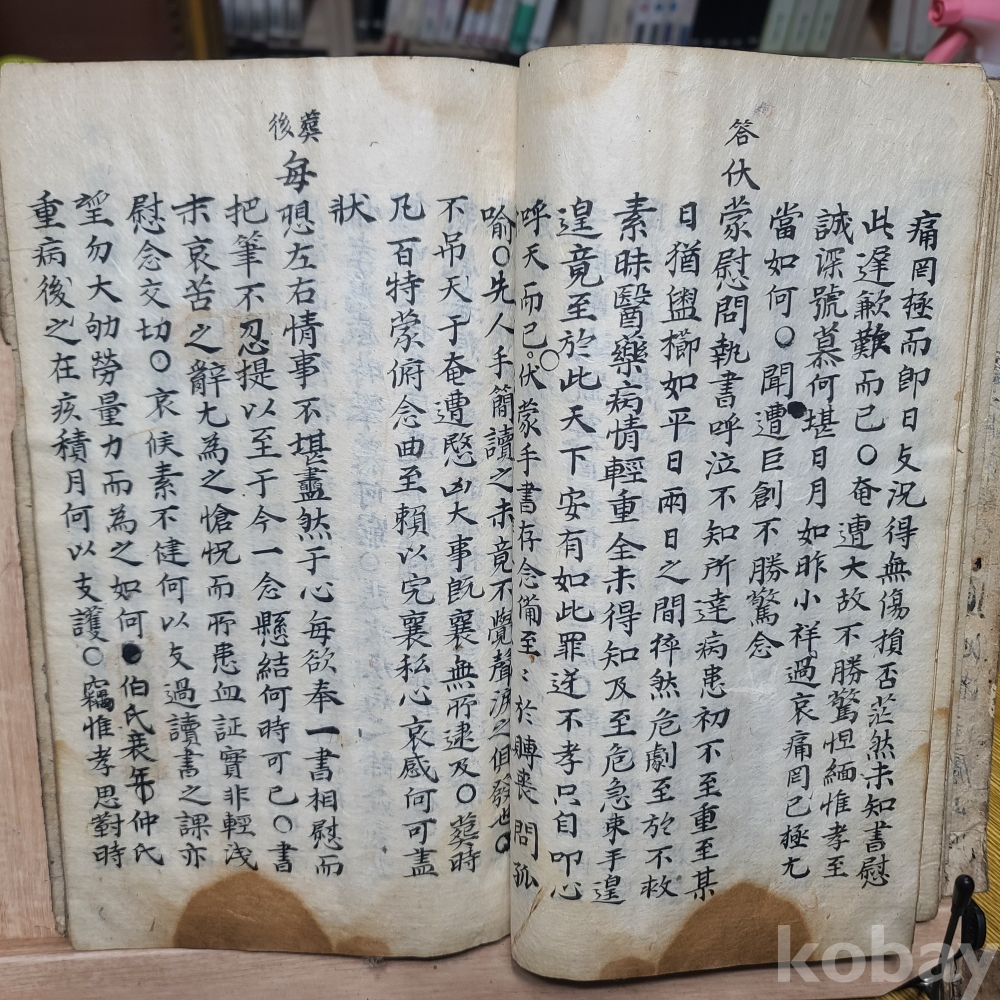 痛罔極而卽日攴況得無傷損否茫然未知書慰
此遲歉難而已○奄遭大故不勝驚怛緬惟孝至
誠深號慕何堪日月如昨小祥過哀痛罔已極尤
當如何○聞遭巨創不勝驚念
答伏
蒙慰問執書呼泣不知所達病患初不至重至某
日猶盥櫛如平日兩日之間猝然危劇至於不救
素昧醫藥病情輕重全未得知及至危急束手遑
遑竟至於此天下安有如此罪逆不孝只自叩心
呼天而已○伏蒙手書存念備至〻於賻喪問孤
喻○先人手簡讀之未竟不覺聲淚之俱發也○
不吊天于奄遭愍凶大事旣襄無所逮及○葬時
凡百特蒙俯念曲至賴以完襄私心哀感何可盡
狀
葬後
每
恩左右情事不堪衋然于心每欲奉一書相慰而
把筆不忍提以至于今一念懸結何時可已○書
末哀苦之辭尤為之愴怳而所患血証實非輕淺
慰念交切○哀候素不健何以攴過讀書之課亦
望勿大劬勞量力而為之如何●伯氏衰年仲氏
重病後之在疚積月何以支護○竊惟孝思對時
kobay